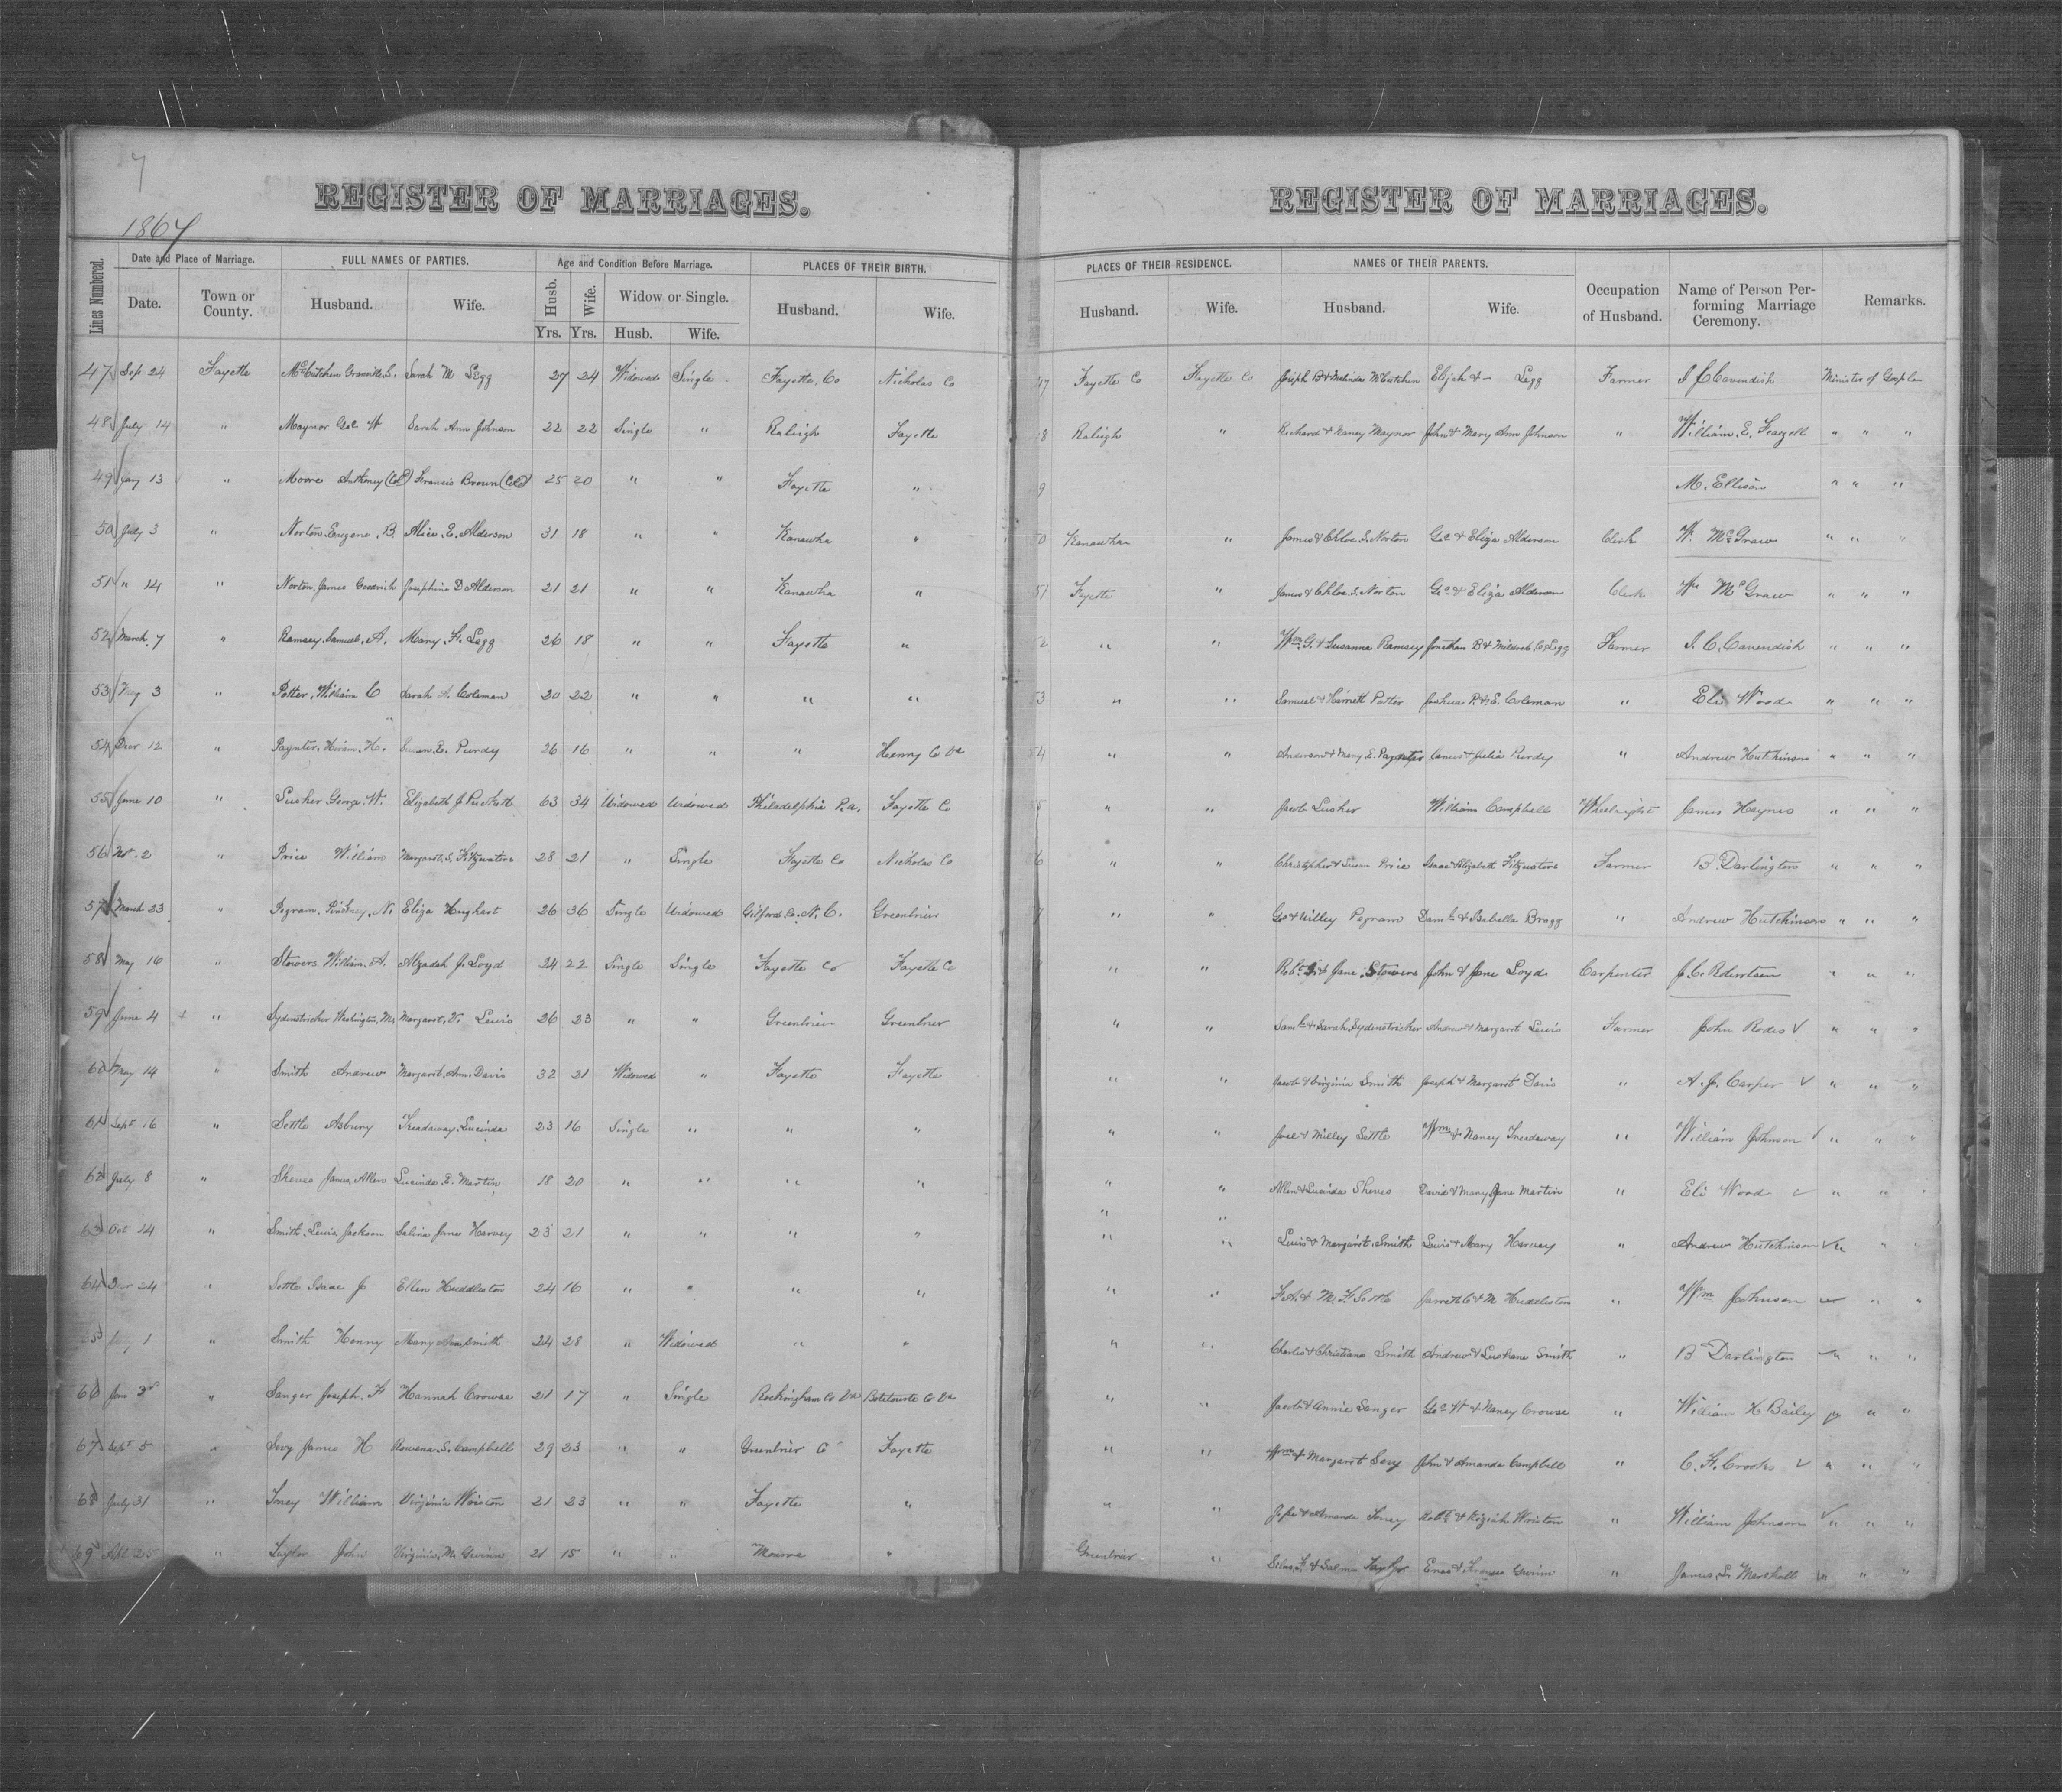 7
REGISTER OF MARRIAGES. REGISTER OF MARRIAGES.
1867
Lines Numbered. Date and Place of Marriage. FULL NAMES OF PARTIES. Age and Condition Before Marriage. PLACES OF THEIR BIRTH. PLACES OF THEIR RESIDENCE. NAMES OF THEIR PARENTS. Occupation of Husband. Name of Person Performing Marriage Ceremony. Remarks.
Date. Town or County. Husband. Wife. Husb. Wife. Widow or Single. Husband. Wife. Husband. Wife. Husband. Wife.
Yrs. Yrs. Husb. Wife.
47 Sep 24 Fayette McCutchen Granville S. Sarah M Legg 27 24 Widowed Single Fayette, Co Nicholas Co 47 Fayette Co Fayette Co Joseph B & Malinda McCutchen Elijah & — Legg Farmer J C Cavendish Minister of Gosple
48 July 14 " Maynor Geo W Sarah Ann Johnson 22 22 Single " Raleigh Fayette 8 Raleigh " Richard & Nancy Maynor John & Mary Ann Johnson " William. E. " " "
49 13 " Moore Anthoney (Col) Francis Brown (Col) 25 20 " " Fayette " 9 M. Ellison " " "
50 July 3 " Norton, Eugene, B. Alice. E. Alderson 31 18 " " Kanawha " 0 Kanawha " James & Chloe. S. Norton Geo & Eliza Alderson Clerk W. McGraw " " "
51 " 14 " Norton, James Goodrich Josephine D. Alderson 21 21 " " Kanawha " 51 Fayette " James & Chloe. S. Norton Geo & Eliza Alderson Clerk Wm McGraw " " "
52 March. 7 " Ramsey, Samuel, A. Mary. F. Legg 26 18 " " Fayette " 2 " " Wm. G. & Susanna Ramsey Jonathan B & Mildred. C. Legg Farmer J. C. Cavendish " " "
53 3 " Potter, William C Sarah A. Coleman 20 22 " " " " 3 " " Samuel & Harriett Potter Joshua P. & E. Coleman " Eli Wood " " "
54 Dec 12 " Paynter, Hiram, H. Susan. E. Purdy 26 16 " " " Henry Co Va 54 " " Anderson & Mary E. Paynter & Julia Purdy " Andrew Hutchinson " " "
55 June 10 " Lusher George. W. Elizabeth J. Puckett 63 34 Widowed Widowed Philadelphia Pa. Fayette Co 5 " " Jacob Lusher William Campbell Wheelright James Haynes " " "
56 2 " Price William Margaret, S. Fitzwaters 28 21 " Single Fayette Co Nicholas Co 6 " " Christopher & Susan Price Isaac & Elizabeth Fitzwaters Farmer B. Darlington " " "
57 March 23 " Pegram, Pinkney, N. Eliza Hughart 26 36 Single Widowed Gilford Co. N. C. Greenbrier 7 " " Geo & Milley Pegram Daml & Isabella Bragg " Andrew Hutchinson " " "
58 May 16 " Stowers William. A. Alzadah J. Loyd 24 22 Single Single Fayette Co Fayette Co " " Robt. G. & Jane. Stowers John & Jane Loyd Carpenter J. C. Robertson " " "
59 June 4 " Sydenstricker Washington, M. Margaret, V. Lewis 26 23 " " Greenbrier Greenbrier " " Saml & Sarah Sydenstricker Andrew & Margaret Lewis Farmer John Rodes " " "
60 May 14 " Smith Andrew Margaret, Ann. Davis 32 21 Widowed " Fayette Fayette " " Jacob & Virginia Smith Joseph & Margaret Davis " A. J. Carper " " "
61 Sept 16 " Settle Asbury Treadaway. Lucinda 23 16 Single " " " " " Joel & Milley Settle Wm & Nancy Treadaway " William Johnson " " "
62 July 8 " Sheves James, Allen Lucinda E. Martin 18 20 " " " " " " Allen & Lucinda Sheves David & Mary Jane Martin " Eli Wood " " "
63 Oct 14 " Smith. Lewis, Jackson Salina Jane Harvey 23 21 " " " " " " Lewis & Margaret. Smith Lewis & Mary Harvey " Andrew Hutchinson " " "
64 24 " Settle Isaac J Ellen Huddleston 24 16 " " " " " " F. A. & M. F. Settle Jarrett C & M Huddleston " Wm Johnson " "
1 " Smith Henry Mary Ann Smith 24 28 " Widowed " " " " Charles & Christiana Smith Andrew & Smith " B Darlington " " "
66 Jan 3d " Sanger Joseph. F Hannah Crowse 21 17 " Single Rockingham Co Va Botetourte Co Va " " Jacob & Annie Sanger Geo W & Nancy Crowse " William H Bailey " "
67 Sept 5 " Sevy James H Rowena. S. Campbell 29 23 " " Greenbrier Co Fayette 7 " " Wm & Margaret Sevy John & Amanda Campbell " C. F. Crooks " " "
68 July 31 " Toney William Virginia Winston 21 23 " " Fayette " " " & Amanda Toney Robt & Keziah Winston " William Johnson " " "
69 Sept 25 " Taylor John Virginia. M. Gwinn 21 15 " " Monroe " Greenbrier " & Salma Taylor Enos & Frances Gwinn " James. S. Marshall " "